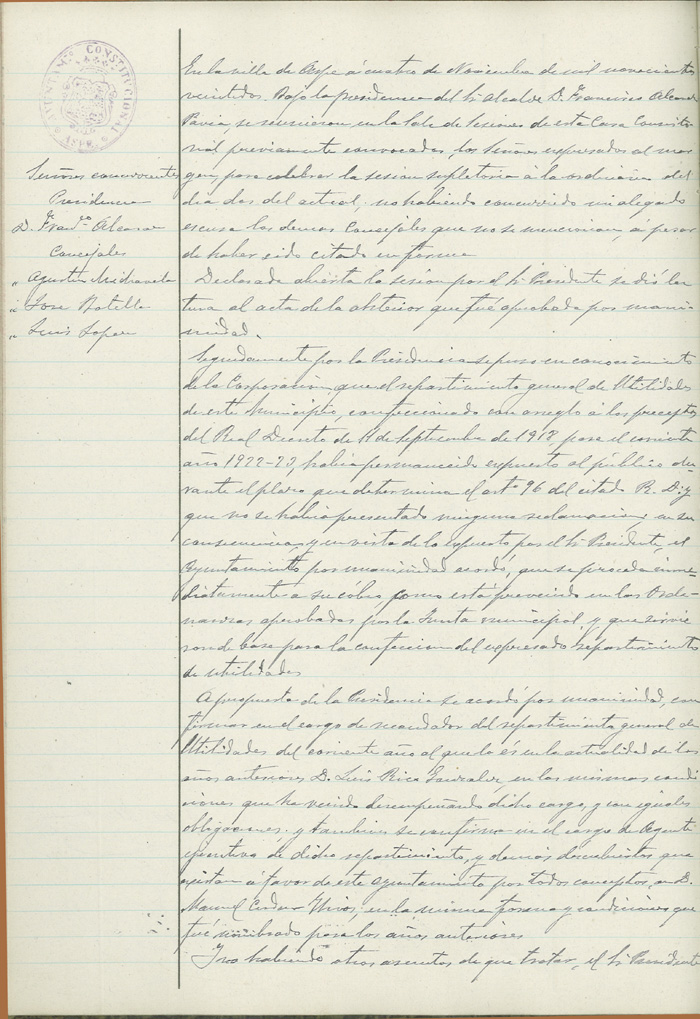 AYUNTAMTO CONSTITUCIONAL
ASPE
Señores concurrentes
Presidencia
D. Francº Alcaraz
Concejales
" Agustín Mira
" Jose Botella
" Luis Lopez
En la villa de Aspe á cuatro de Noviembre de mil novecientos
veintidos. Bajo la presidencia del Sr Alcalde D. Francisco Alcaraz
Pavia, se reunieron en la Sala de Sesiones de esta Casa Consisto
rial previamente convocados, los Señores expresados al mar
gen para celebrar la sesion supletoria á la ordinaria del
dia dos del actual, no habiendo concurrido ni alegado
escusa los demas Concejales que no se mencionan, á pesar
de haber sido citados en forma
Declarada abierta la sesión por el Sr Presidente se dió lec
tura al acta de la anterior que fué aprobada por unani
midad.
Seguidamente por la Presidencia se puso en conocimiento
de la Corporacion que el repartimiento general de Utilidades
de este Municipio, confeccionado con arreglo á los preceptos
del Real Decreto de 11 de Septiembre de 1918, para el corriente
año 1922-23, habia permanecido expuesto al público du-
rante el plazo que determina el artº 96 del citado R. D. y
que no se habia presentado ninguna reclamacion; en su
consecuencia y en vista de lo expuesto por el Sr Presidente, el
Ayuntamiento por unanimidad acordó, que se proceda inme
diatamente a su cóbro, como está prevenido en las Orde-
nanzas aprobadas por la Junta municipal y que sirvie
ron de base para la confeccion del expresado repartimiento
de utilidades
A propuesta de la Presidencia se acordó por unanimidad, con
firmar en el cargo de recaudador del repartimiento general de
Utilidades del corriente año al que lo és en la actualidad de los
años anteriores D. Luis Rico Gonzalez, en las mismas condi
ciones que ha venido desempeñando dicho cargo, y con iguales
obligaciones; y tambien se confirmó en el cargo de Agente
ejecutivo de dicho repartimiento, y demás descubiertos que
existan á favor de este Ayuntamiento por todos conceptos, a D.
Manuel, en la misma forma y condiciones que
fué nombrado para los años anteriores
Y no habiendo otros asuntos de que tratar, el Sr Presidente